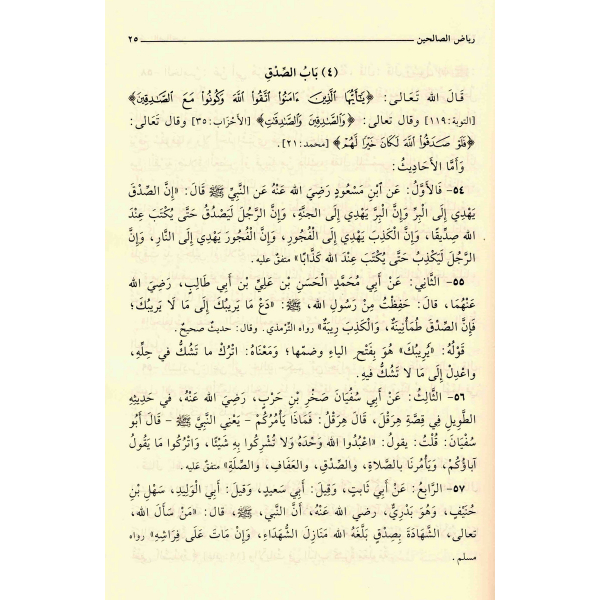 رياض الصالحين ٢٥
(٤) بَابُ الصِّدْقِ
قَالَ الله تَعَالى: ﴿يَٰٓأَيُّهَا ٱلَّذِينَ ءَامَنُوا۟ ٱتَّقُوا۟ ٱللَّهَ وَكُونُوا۟ مَعَ ٱلصَّٰدِقِينَ﴾
[التوبة: ١١٩] وقال تعالى: ﴿وَٱلصَّٰدِقِينَ وَٱلصَّٰدِقَٰتِ﴾ [الأَحْزَاب: ٣٥] وقال تَعالى:
﴿فَلَوْ صَدَقُوا۟ ٱللَّهَ لَكَانَ خَيْرًا لَّهُمْ﴾ [محمد: ٢١].
وَأَمَّا الأَحَادِيثُ:
٥٤- فَالأَوَّلُ: عَن ٱبْنِ مَسْعُودٍ رَضِيَ الله عَنْهُ عَن النَّبِيِّ ﷺ قَالَ: «إِنَّ الصِّدْقَ
يَهْدِي إِلَى الْبِرِّ وَإِنَّ الْبِرَّ يَهْدِي إِلَى الجنَّةِ، وَإِنَّ الرَّجُلَ لَيَصْدُقُ حَتَّى يُكْتَبَ عِنْدَ
الله صِدِّيقًا، وَإِنَّ الْكَذِبَ يَهْدِي إِلَى الْفُجُورِ، وَإِنَّ الْفُجُورَ يَهْدِي إِلَى النَّارِ، وَإِنَّ
الرَّجُلَ لَيَكْذِبُ حَتَّى يُكْتَبَ عِنْدَ الله كَذَّابًا» متفقٌ عليه.
٥٥- الثَّانِي: عَنْ أَبِي مُحَمَّدٍ الْحَسَنِ بْنِ عَلِيِّ بْنِ أَبِي طَالِبٍ، رَضِيَ الله
عَنْهُمَا، قَالَ: حَفِظْتُ مِنْ رَسُولِ الله، ﷺ: «دَعْ مَا يَرِيبُكَ إِلَى مَا لَا يَرِيبُكَ؛
فَإِنَّ الصِّدْقَ طُمَأْنِينَةٌ، وَالْكَذِبَ رِيبَةٌ» رواه التِّرْمذي. وقال: حديثٌ صحيحٌ.
قَوْلُهُ: «يُرِيبُكَ» هُوَ بِفَتْحِ الياءِ وضمِّها؛ وَمَعْنَاهُ: اتْرُكْ ما تَشُكُّ في حِلِّهِ،
واعْدِلْ إِلَى مَا لا تَشُكُّ فيهِ.
٥٦- الثَّالِثُ: عَنْ أَبِي سُفْيَانَ صَخْرِ بْنِ حَرْبٍ، رَضِيَ الله عَنْهُ، في حَدِيثِهِ
الطَّوِيلِ فِي قِصَّةِ هِرَقْلَ، قَالَ هِرَقْلُ: فَمَاذَا يَأْمُرُكُمْ - يَعْنِي النَّبِيَّ ﷺ - قَالَ أَبُو
سُفْيَانَ: قُلْتُ: يقولُ: «اعْبُدُوا الله وَحْدَهُ وَلَا تُشْرِكُوا بِهِ شَيْئًا، وَاتْرُكُوا مَا يَقُولُ
آباؤُكُمْ، وَيَأْمُرنَا بِالصَّلاةِ، وَالصِّدْقِ، وَالعَفَافِ، وَالصِّلَةِ» متفقٌ عليه.
٥٧- الرَّابِعُ: عَنْ أَبِي ثَابتٍ، وَقِيلَ: أَبِي سَعِيدٍ، وَقِيلَ: أَبِي الْوَلِيدِ، سَهْلِ بْنِ
حُنَيْفٍ، وَهُوَ بَدْرِيٌّ، رضي الله عَنْهُ، أَنَّ النَّبِي، ﷺ، قال: «مَنْ سَأَلَ الله،
تعالى، الشَّهَادَةَ بِصِدْقٍ بَلَّغَهُ الله مَنَازِلَ الشُّهَدَاءِ، وَإِنْ مَاتَ عَلَى فِرَاشِهِ» رواه
مسلم.